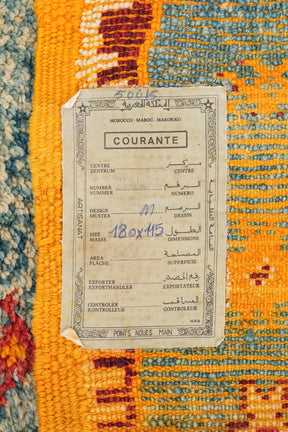 500/5
المملكة المغربية
MOROCCO - MAROC - MAROKKO
COURANTE
CENTRE مركز
ZENTRUM CENTRE
NUMBER الرقم
NUMMER NUMERO
DESIGN M الرسم
MUSTER DESSIN
SIZE 180x115 الطول
MASSE DIMENSIONS
AREA المساحة
FLÄCHE SUPERFICIE
EXPORTER
EXPORTHANDLER EXPORTATEUR
CONTROLER المراقب
KONTROLLEUR CONTROLEUR
ARTISANAT
POINTS NOUES MAIN